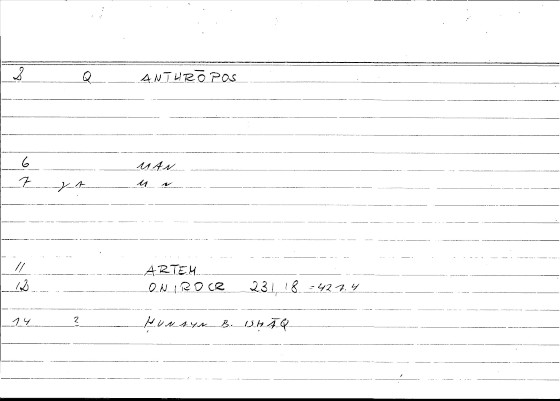 2 Q ANTHRŌPOS
6 MAN
7
11 ARTEM
12 ONIROCR 231,18 =421.4
14 2 HUNAYN B. ISḤĀQ